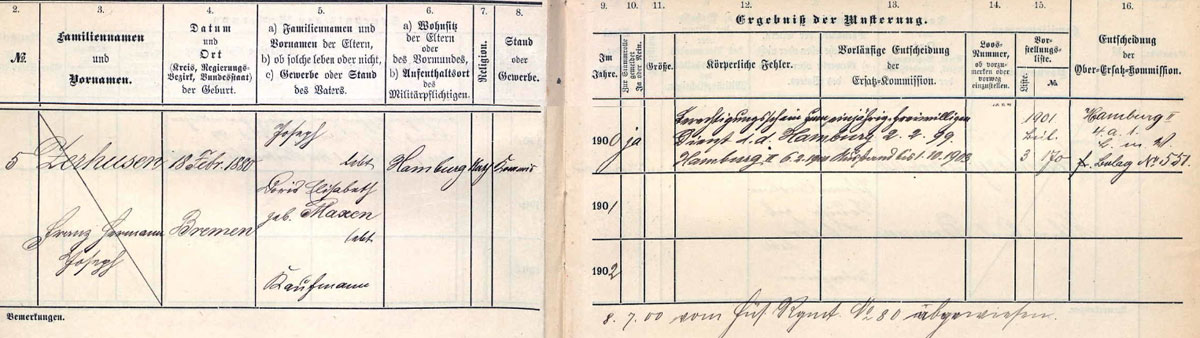 2.
№
3.
Familiennamen
und
Vornamen.
4.
Datum
und
Ort
(Kreis, Regierungs-
Bezirk, Bundesstaat)
der Geburt.
5.
a) Familiennamen und
Vornamen der Eltern,
b) ob solche leben oder nicht,
c) Gewerbe oder Stand
des Vaters.
6.
a) Wohnsitz
der Eltern
oder
des Vormundes,
b) Aufenthaltsort
des
Militärpflichtigen.
7.
Religion.
8.
Stand
oder
Gewerbe.
5
Zerhusen
Franz Hermann
Joseph
18 Febr. 1880
Bremen
Joseph
lebt
Doris Elisabeth
geb. Maxen
lebt
Kaufmann
Hamburg
Kath
Commis
Bemerkungen.
Ergebniß der Musterung.
9.
Im
Jahre.
10.
Zur Stammrolle
gemeldet
Ja oder Nein.
11.
Größe.
12.
Körperliche Fehler.
13.
Vorläufige Entscheidung
der
Ersatz-Kommission.
14.
Loos-
Nummer,
ob vorzu-
merken oder
vorweg
einzustellen.
15.
Vor-
stellungs-
liste.
Liste.
№
16.
Entscheidung
der
Ober-Ersatz-Kommission.
1900 ja
Berechtigungsschein zum einjährig-freiwilligen
Dienst d. d. Hamburg 2. 2. 99.
Hamburg II 6. 2. 1900 bis 1. 10. 1903
1901
Beil.
3 170
Hamburg II
4. a. 1.
Belag № 551
1901
1902
8. 7. 00 vom Füs. Rgmt. № 80 abgewiesen.